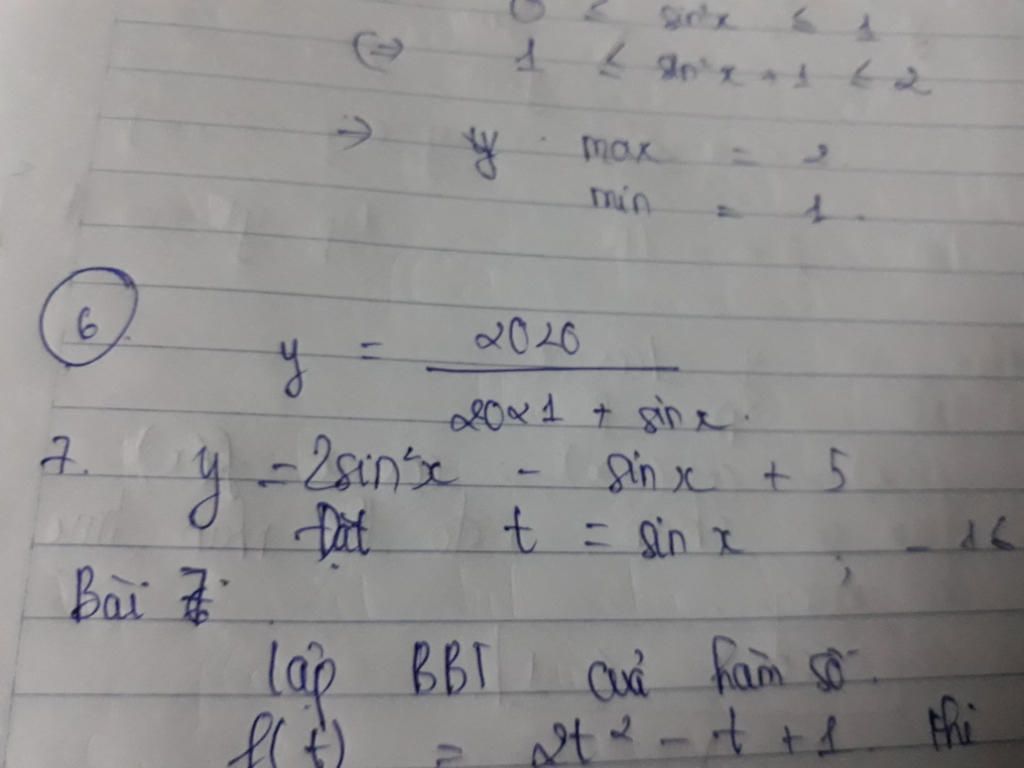 0 ≤ sin²x ≤ 1
(⇒ 1 ≤ sin²x + 1 ≤ 2
→ y max = 2
min = 1.
6 y = 2020 / 2021 + sin x.
7. y = 2sin²x - sin x + 5
Đặt t = sin x ; - 1 ≤
Bài 7.
lập BBT của hàm số
f(t) = 2t² - t + 1 thì